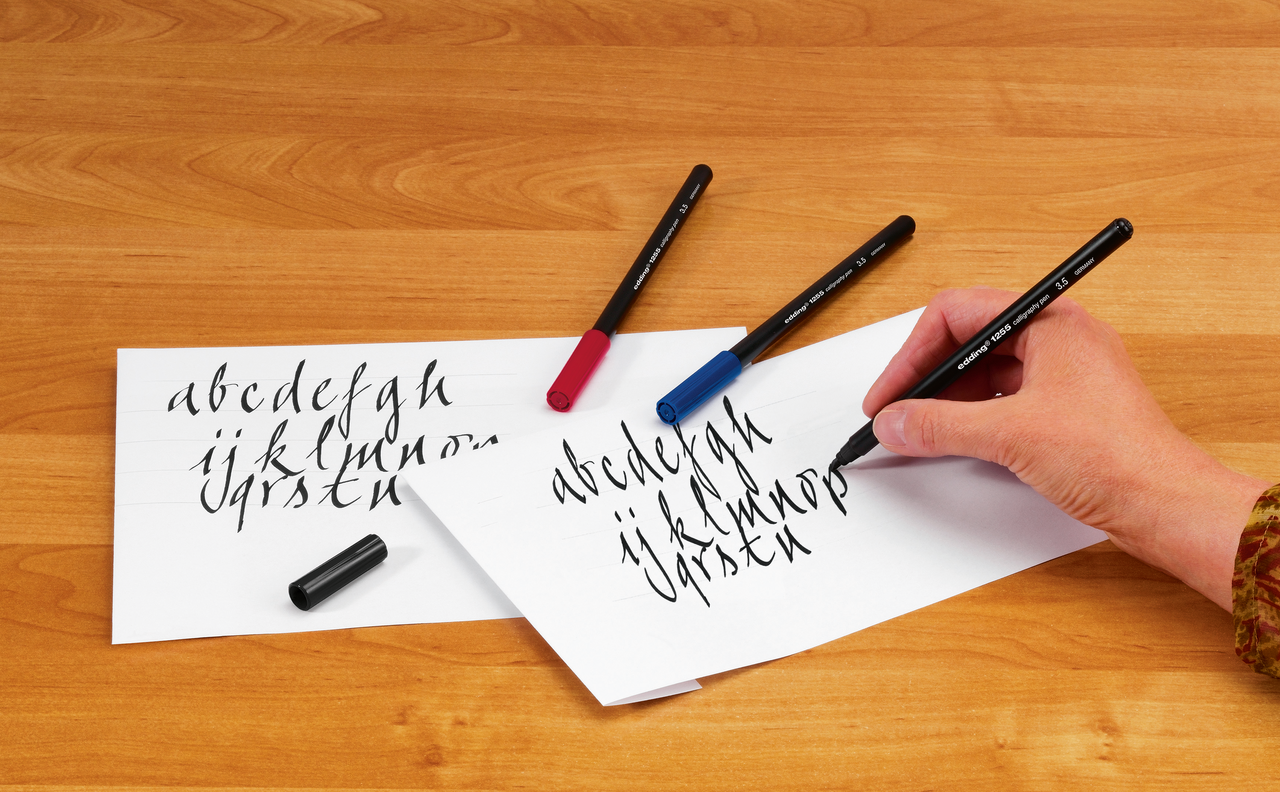 abcdefgh
ijklmnop
qrstu
abcdefgh
ijklmnop
qrstu
edding® 1255 calligraphy pen 3.5 GERMANY
edding® 1255 calligraphy pen 3.5 GERMANY
edding® 1255 calligraphy pen 3.5 GERMANY